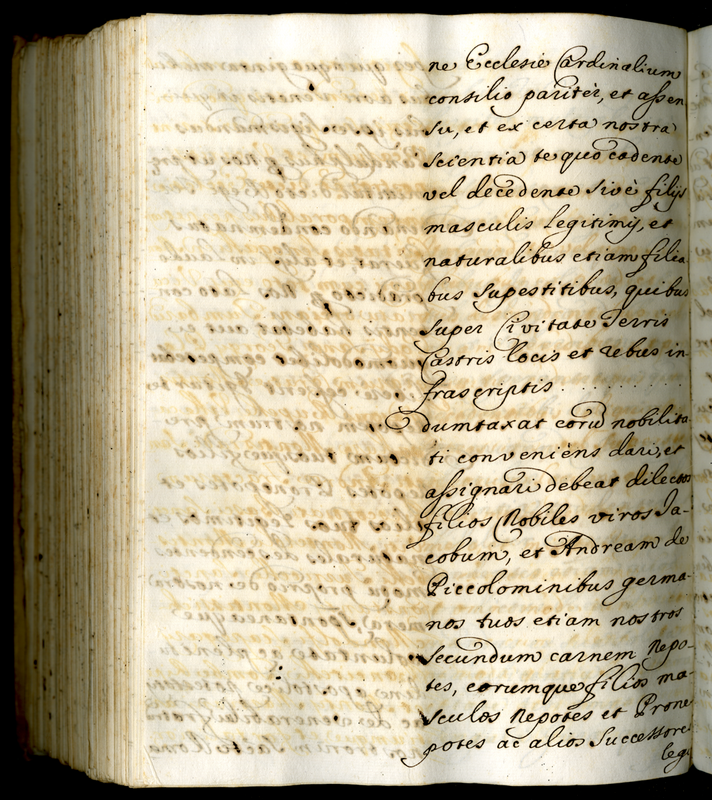 ne Ecclesiè Cardinalium
consilio paritèr, et assen
su, et ex certa nostra
scientia te quo cedente
vel decedente sivè filijs
masculis legitimij, et
naturalibus etiam filia
bus supestitibus, quibus
super Civitate Terris
Castris locis et rebus in
frascriptis . . . . . . . . .
dumtaxat eorũ nobilita
ti conveniens dari, et
assignari debeat dilectos
filios Nobiles viros Ja-
cobum, et Andream de
Piccolominibus germa-
nos tuos etiam nostros
secundum carnem Nepo-
tes, eorumque filios ma-
sculos Nepotes et Prone
potes ac alios Successores
legi